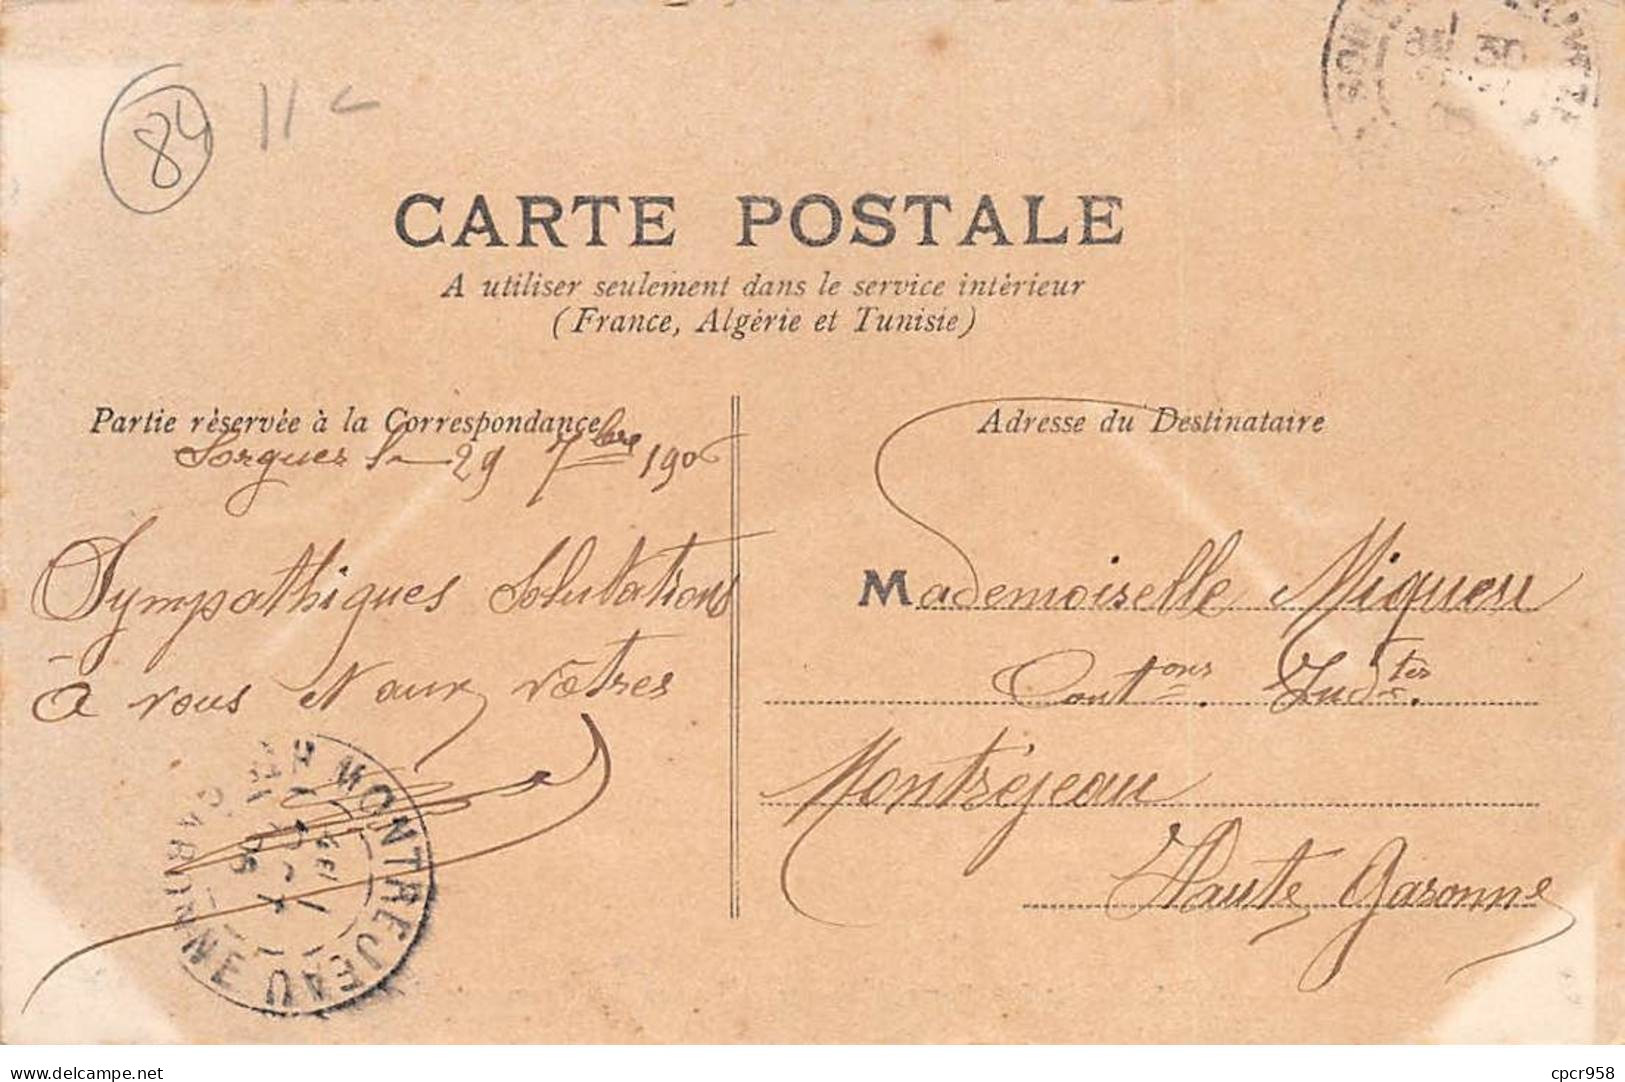 84
CARTE POSTALE
A utiliser seulement dans le service intérieur
(France, Algérie et Tunisie)
Partie réservée à la Correspondance
Adresse du Destinataire
Sorgues le 29 7bre 1906
Sympathiques Salutations
à vous et aux vôtres
Mademoiselle Miqueu
Cont.ons Ind.tes.
Montréjeau
Haute Garonne
MONTREJEAU
Hte GARONNE
cpcr958